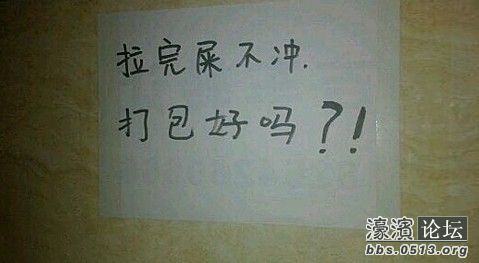 拉完屎不冲.
打包好吗?!
濠滨 论坛
bbs.0513.org